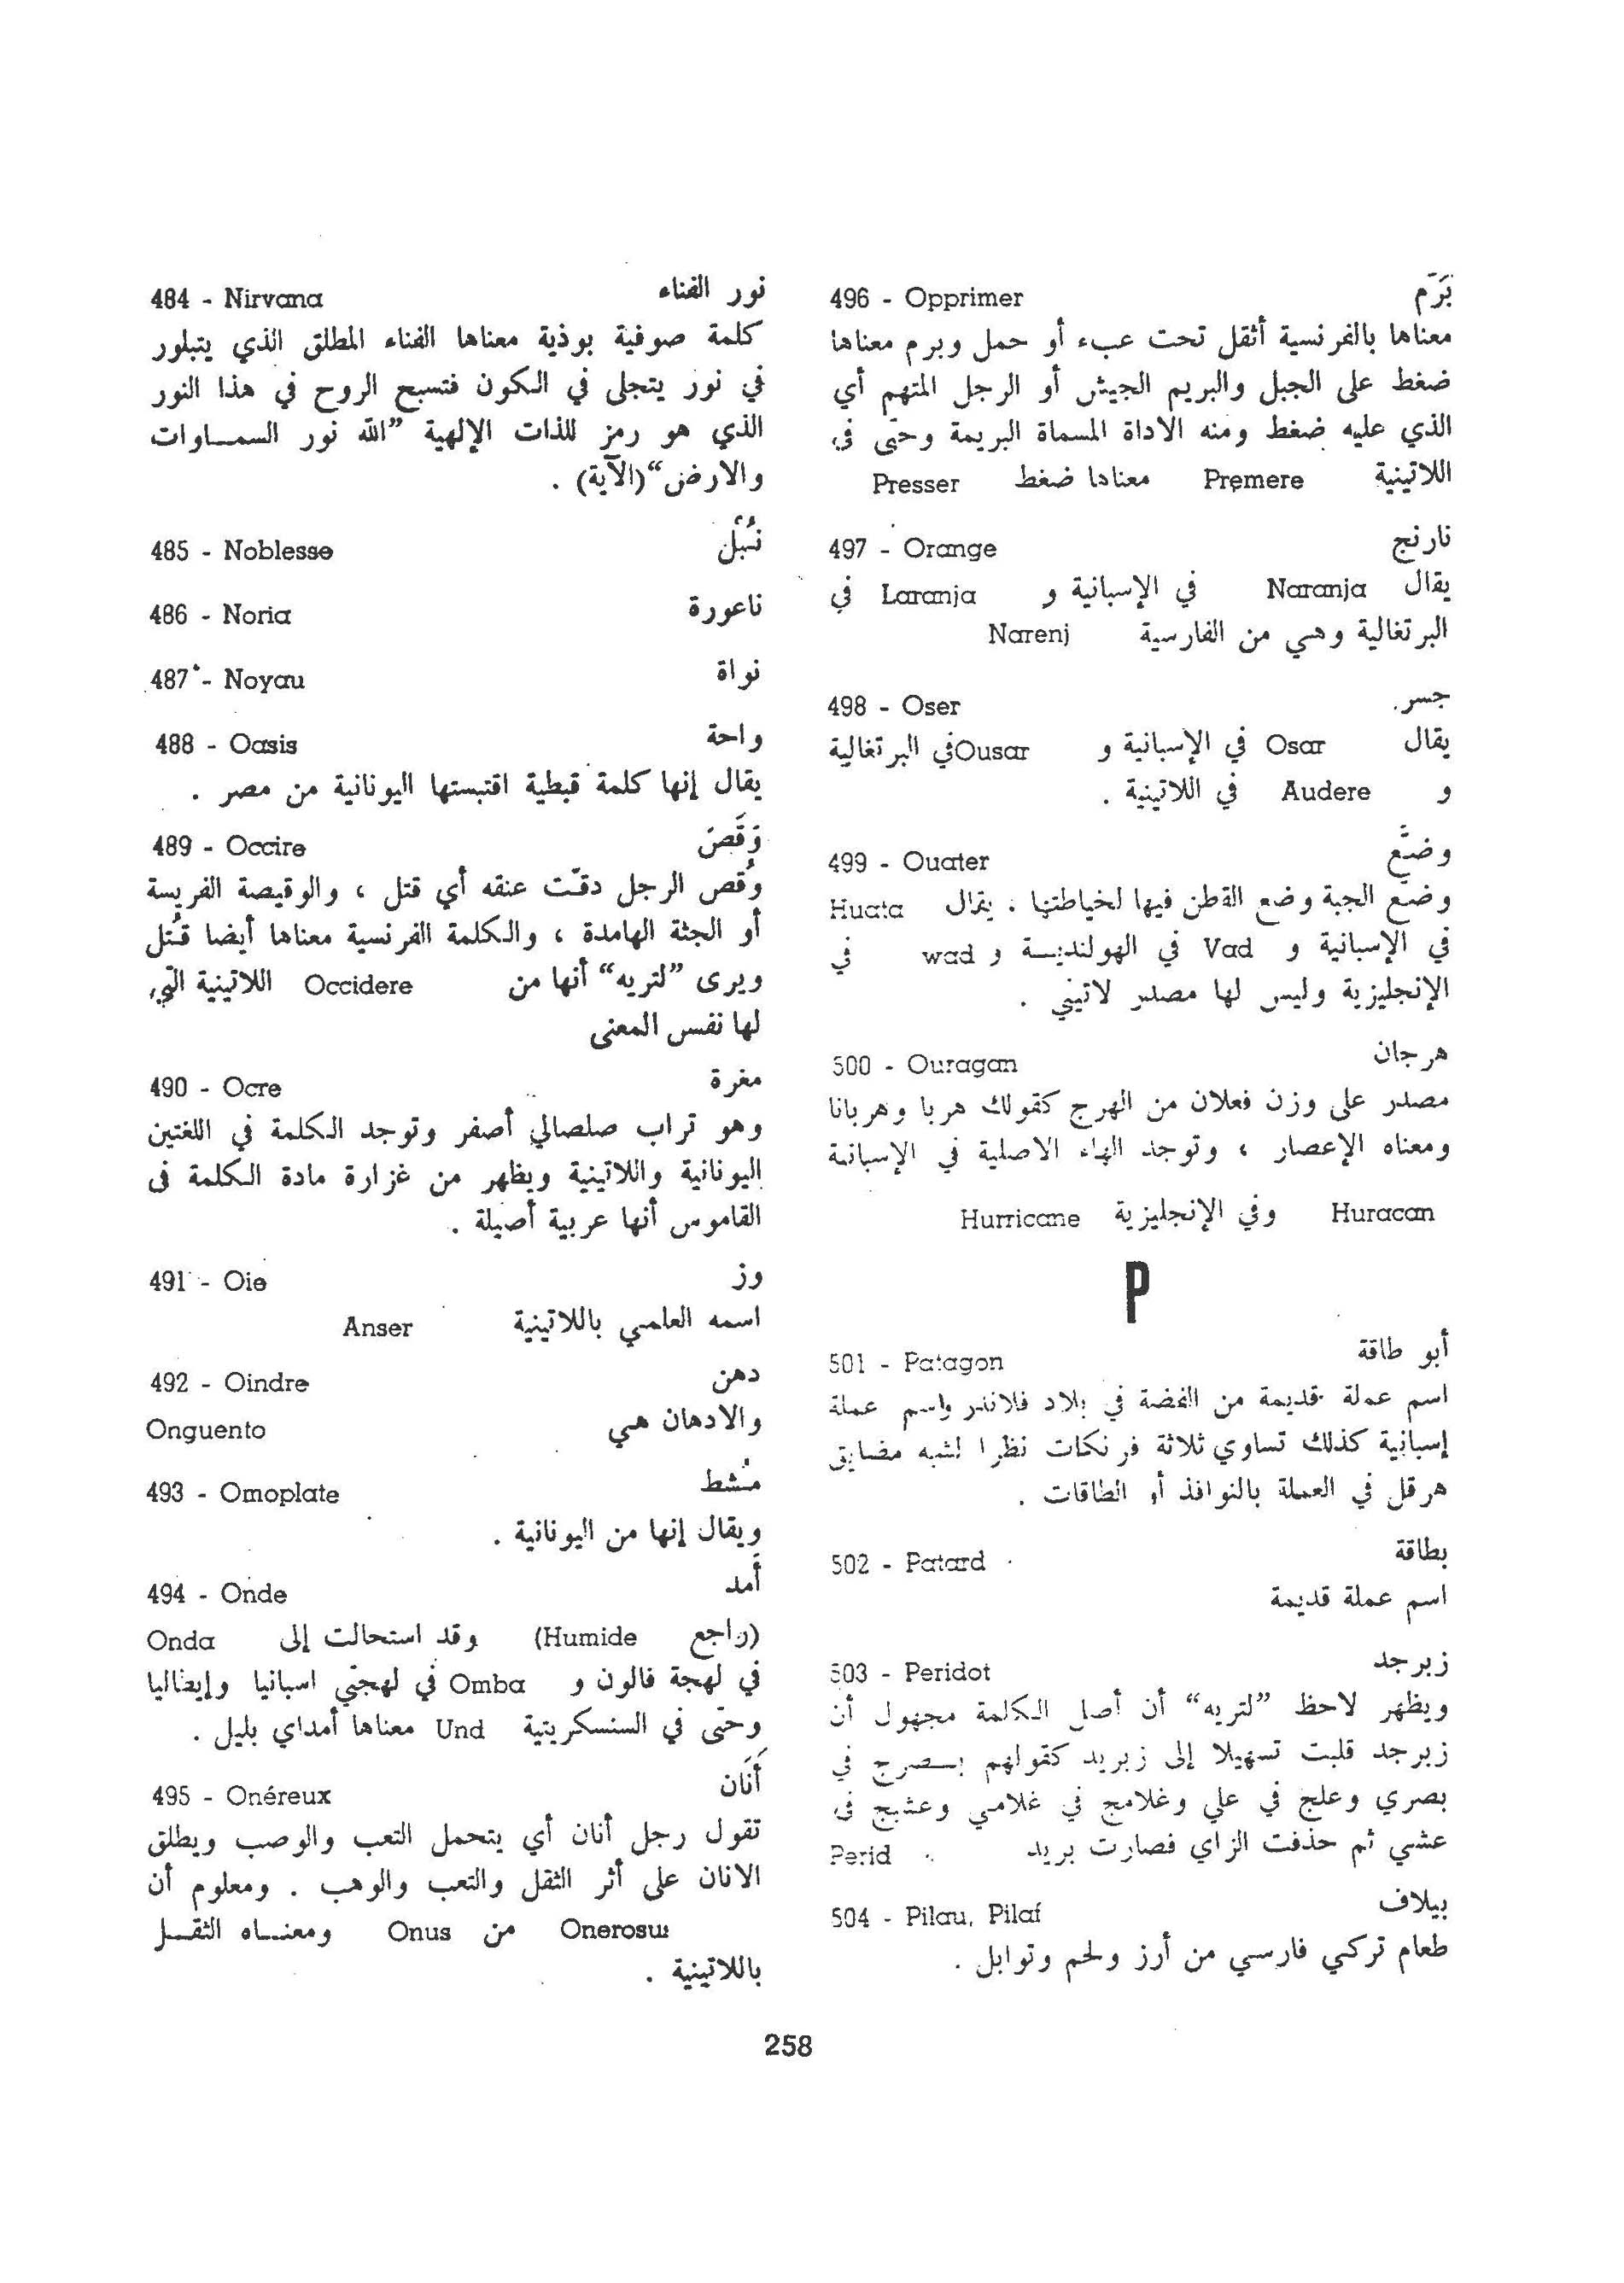 484 - Nirvana نور الفناء
كلمة صوفية بوذية معناها الفناء المطلق الذي يتبلور
في نور يتجلى في الكون فتسبح الروح في هذا النور
الذي هو رمز للذات الإلهية ”الله نور السمـاوات
والارض“ (الآية) .
485 - Noblesse نُبْل
486 - Noria ناعورة
487 - Noyau نواة
488 - Oasis واحة
يقال إنها كلمة قبطية اقتبستها اليونانية من مصر .
489 - Occire وَقَصَ
وُقص الرجل دقّت عنقه أي قتل ، والوقيصة الفريسة
أو الجثة الهامدة ، والكلمة الفرنسية معناها أيضا قُتل
ويرى ”لتريه“ أنها من Occidere اللاتينية التي
لها نفس المعنى
490 - Ocre مغرة
وهو تراب صلصالي أصفر وتوجد الكلمة في اللغتين
اليونانية واللاتينية ويظهر من غزارة مادة الكلمة في
القاموس أنها عربية أصيلة .
491 - Oie وز
اسمه العلمي باللاتينية Anser
492 - Oindre دهن
والادهان هي Onguento
493 - Omoplate مُشط
ويقال إنها من اليونانية .
494 - Onde أَمد
(راجع Humide) وقد استحالت إلى Onda
في لهجة فالون و Omba في لهجتي اسبانيا وإيطاليا
وحتى في السنسكريتية Und معناها أمداي بليل .
495 - Onéreux أَنَان
تقول رجل أنان أي يتحمل التعب والوصب ويطلق
الانان على أثر الثقل والتعب والوهب . ومعلوم أن
Onerosus من Onus ومعنـاه الثقـل
باللاتينية .
496 - Opprimer بَرَم
معناها بالفرنسية أثقل تحت عبء أو حمل وبرم معناها
ضغط على الجبل والبريم الجيش أو الرجل المتهم أي
الذي عليه ضغط ومنه الاداة المسماة البريمة وحتى في
اللاتينية Premere معناها ضغط Presser
497 - Orange نارنج
يقال Naranja في الإسبانية و Laranja في
البرتغالية وهي من الفارسية Narenj
498 - Oser جسر
يقال Osar في الإسبانية و Ousar في البرتغالية
و Audere في اللاتينية .
499 - Ouater وضَّع
وضّع الجبة وضع القطن فيها لخياطتها . يقال Huata
في الإسبانية و Vad في الهولنديـة و wad في
الإنجليزية وليس لها مصدر لاتيني .
500 - Ouragan هرجان
مصدر على وزن فعلان من الهرج كقولك هربا وهربانا
ومعناه الإعصار ، وتوجد الهاء الاصلية في الإسبانية
Huracan وفي الإنجليزية Hurricane
P
501 - Patagon أبو طاقة
اسم عملة قديمة من الفضة في بلاد فلاندر واسم عملة
إسبانية كذلك تساوي ثلاثة فرنكات نظرا لشبه مضايق
هرقل في العملة بالنوافذ أو الطاقات .
502 - Patard بطاقة
اسم عملة قديمة
503 - Peridot زبرجد
ويظهر لاحظ ”لتريه“ أن أصل الكلمة مجهول أن
زبرجد قلبت تسهيلا إلى زبريد كقولهم بـصرج في
بصري وعلج في علي وغلامج في غلامي وعشبج في
عشي ثم حذفت الزاي فصارت بريد Perid
504 - Pilau, Pilaf بيلاف
طعام تركي فارسي من أرز ولحم وتوابل .
258